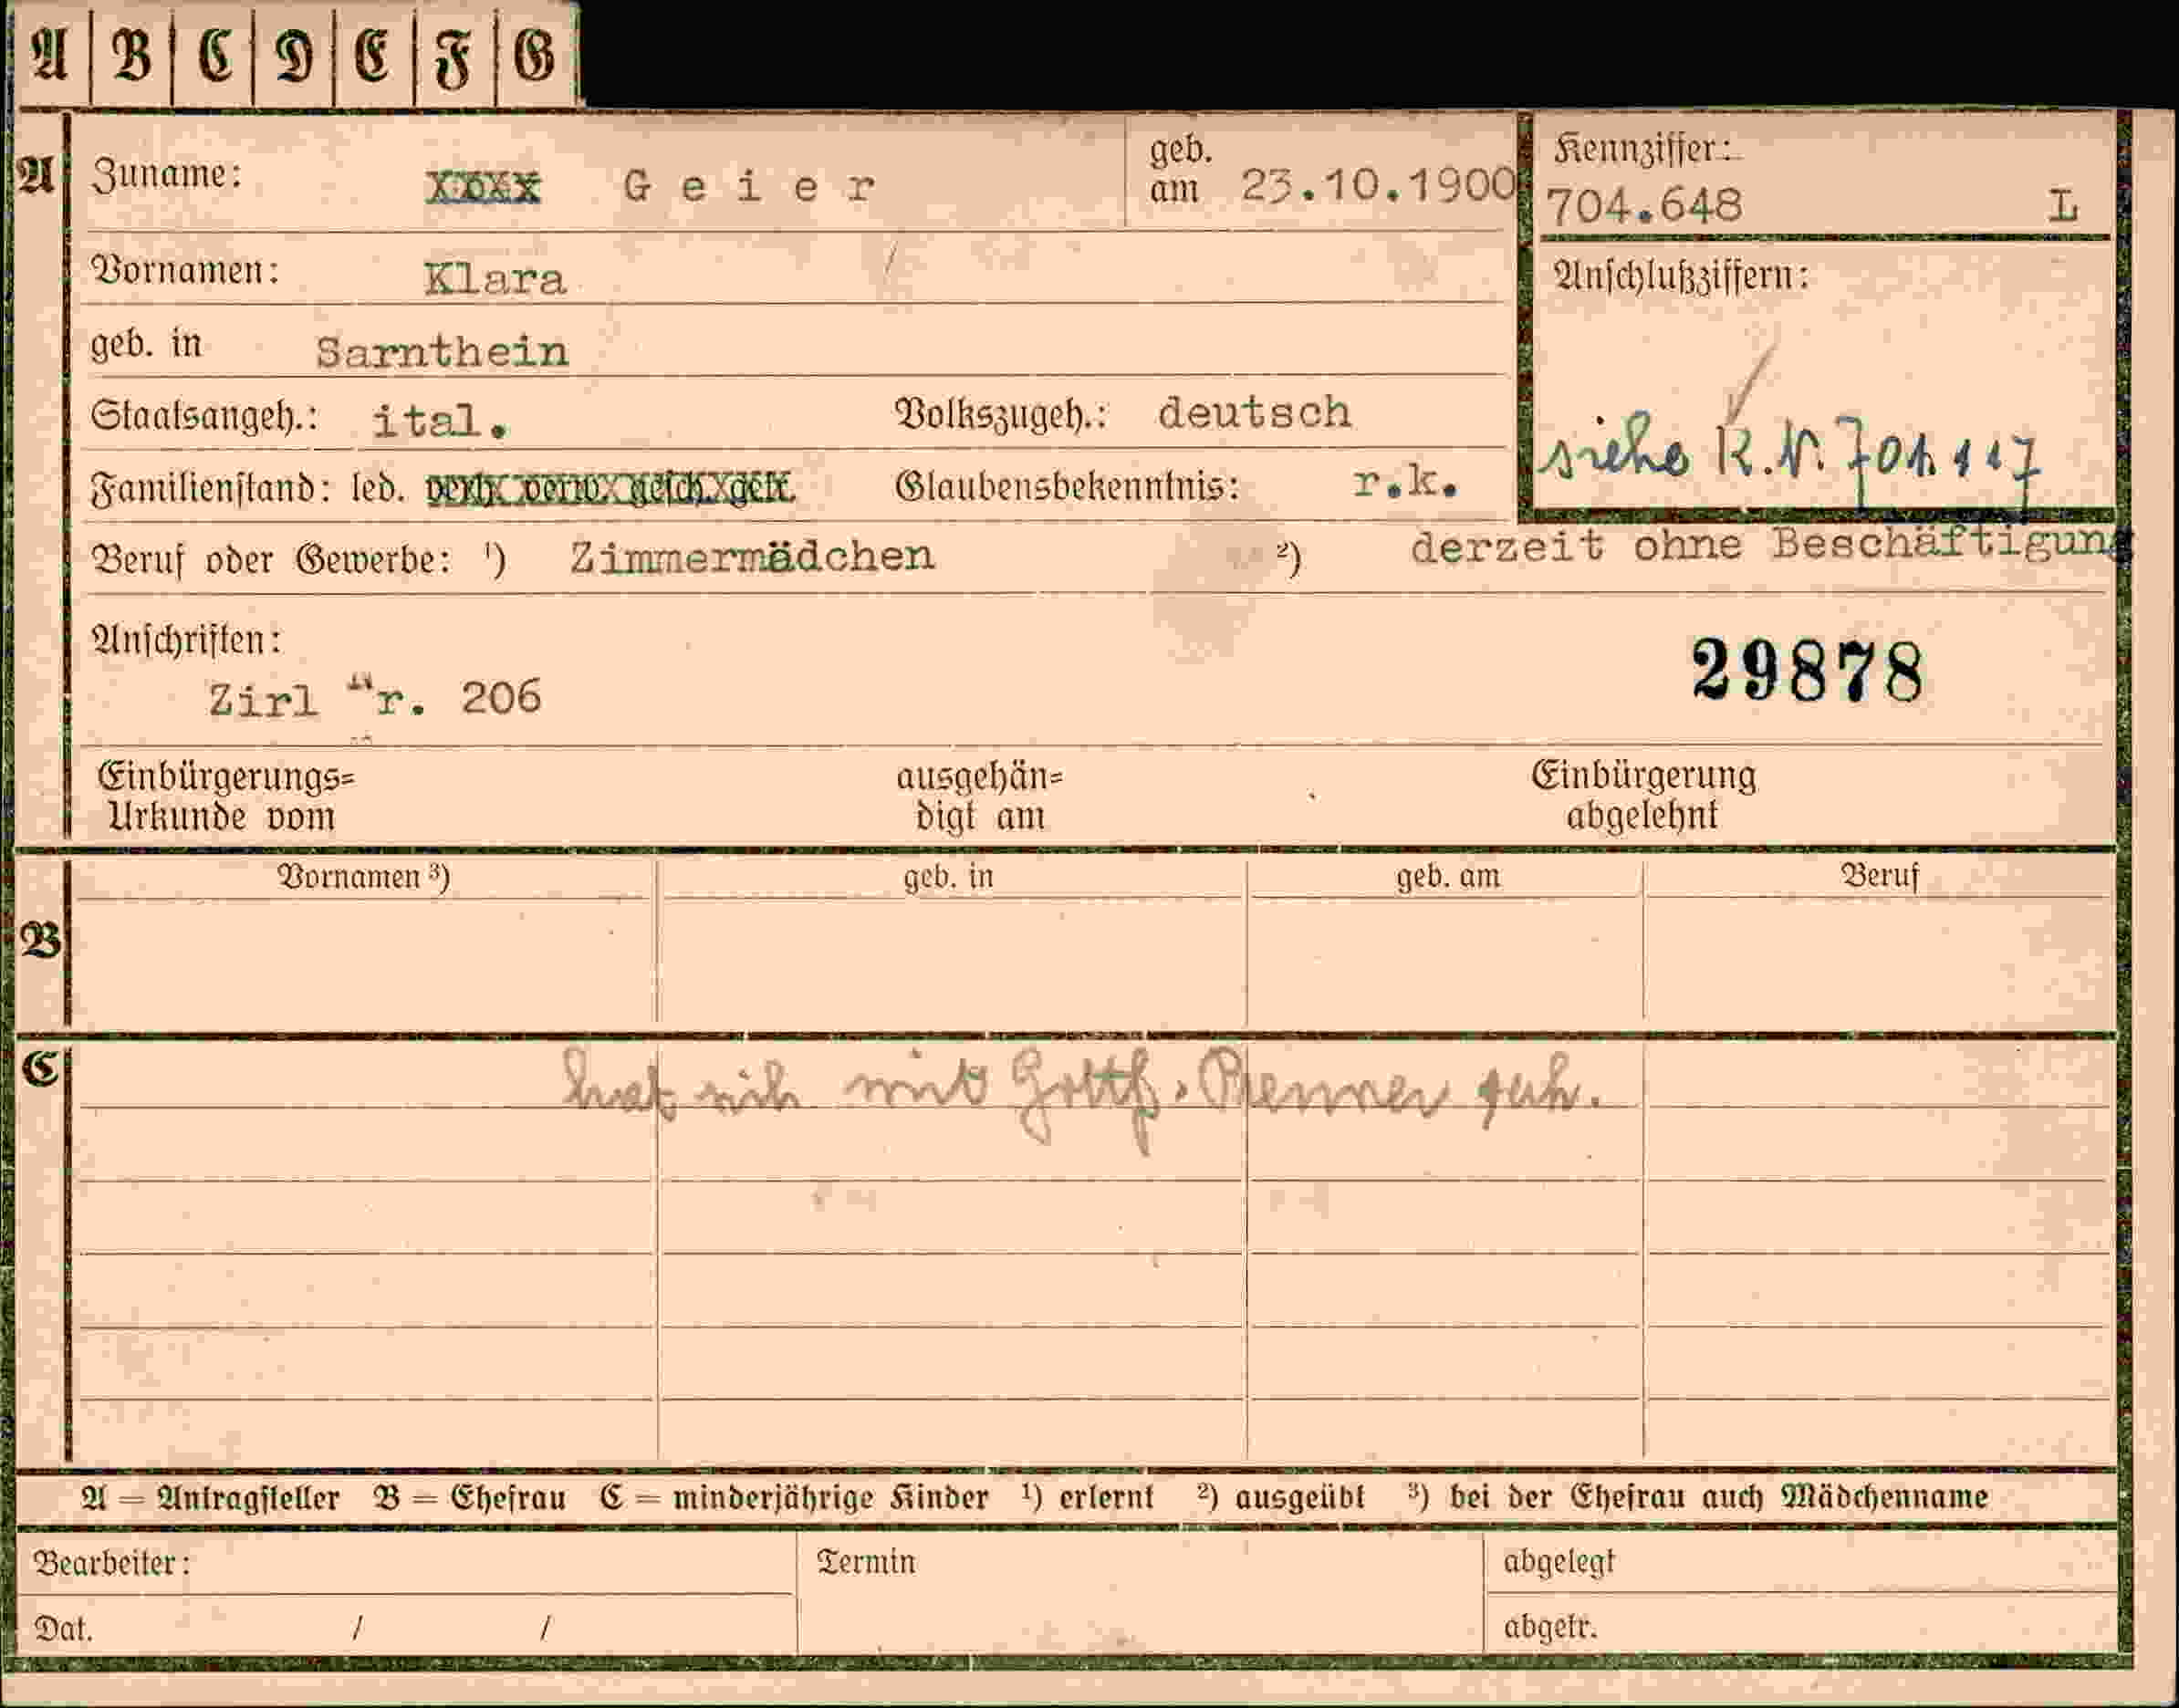 A B C D E F G
A Zuname: G e i e r geb. am 23.10.1900
Kennziffer: 704.648 L
Vornamen: Klara
Anschlußziffern:
geb. in Sarnthein
Staatsangeh.: ital. Volkszugeh.: deutsch
siehe K.N.
Familienstand: led. verh. verw. gesch. getr. Glaubensbekenntnis: r.k.
Beruf oder Gewerbe: ¹) Zimmermädchen ²) derzeit ohne Beschäftigung
Anschriften:
Zirl Nr. 206
29878
Einbürgerungs= ausgehän= Einbürgerung
Urkunde vom digt am abgelehnt
Vornamen ³) geb. in geb. am Beruf
B
C
hat sich mit Gottf.
A = Antragsteller B = Ehefrau C = minderjährige Kinder ¹) erlernt ²) ausgeübt ³) bei der Ehefrau auch Mädchenname
Bearbeiter: Termin abgelegt
Dat. / / abgetr.